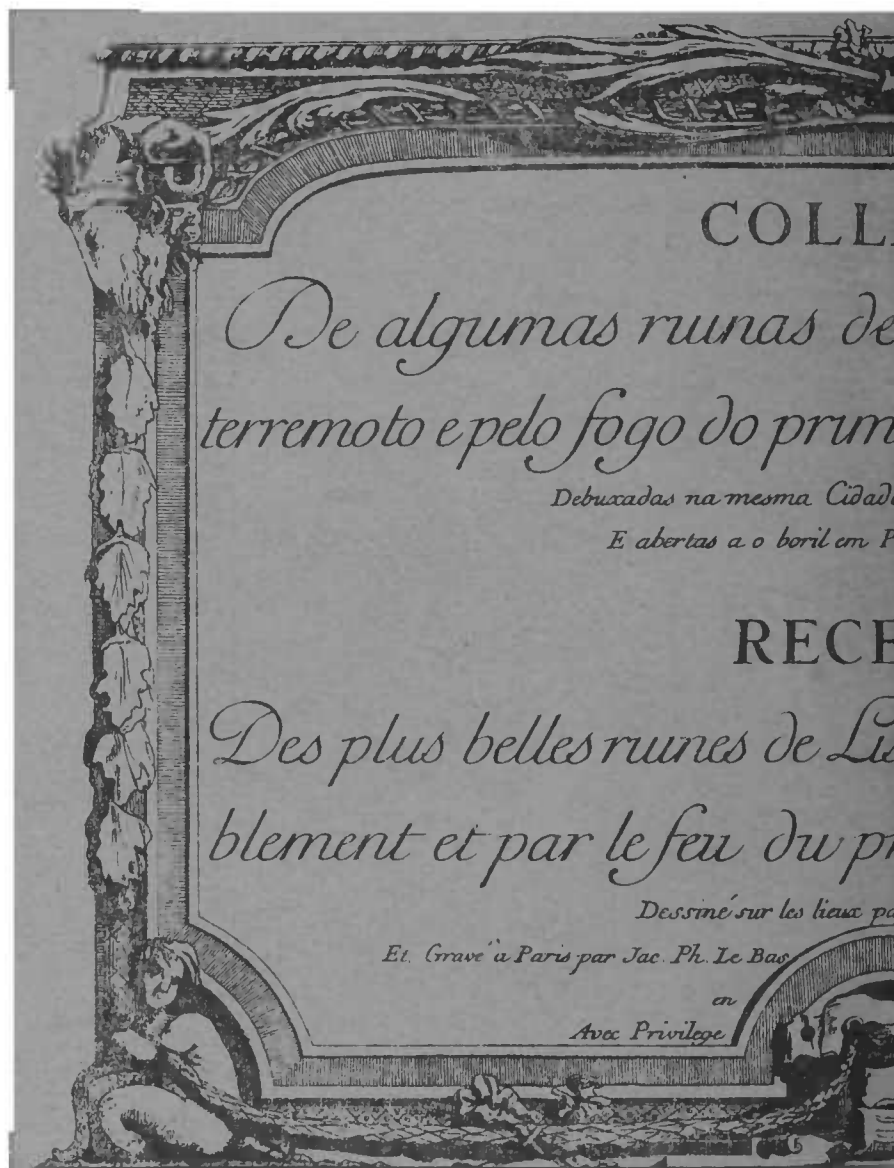 COLL
De algumas ruinas de
terremoto e pelo fogo do prim
Debuxadas na mesma Cidad
E abertas a o boril em P
RECE
Des plus belles ruines de Lis
blement et par le feu du pr
Dessiné sur les lieux pa
Et Gravé à Paris par Jac. Ph. Le Bas
en
Avec Privilege